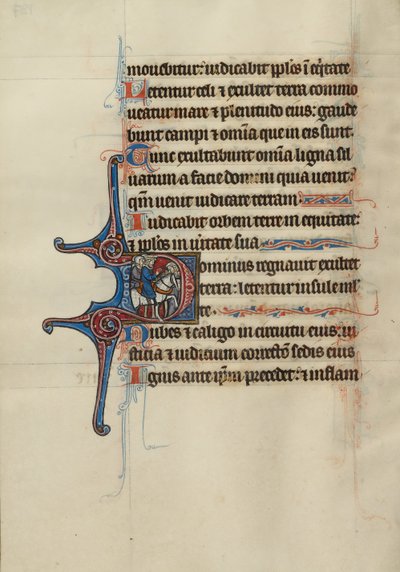 mouebitur: iudicabit pplōs ī eq̇tate
Letentur celi & exultet terra commo
ueatur mare & plenitudo eius: gaude
bunt campi & om̄ia que in eis sunt.
Tunc exultabunt om̄ia ligna sil
uarum a facie domini quia uenit:
qm̄ uenit iudicare terram
Iudicabit orbem terre in equitate:
& pplōs in ūitate sua
Dominus regnauit exultet
terra: letentur insule ml
te.
Nubes & caligo in circuitu eius: iu
sticia & iudicium correctō sedis eius
Ignis ante ip̄m precedet: & inflam